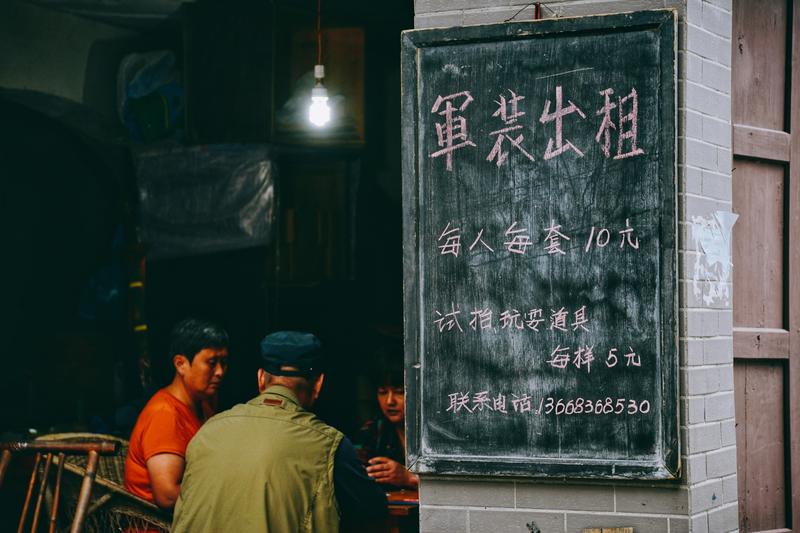 軍装出租
每人每套10元
试拍玩耍道具
每样5元
联系电话.13668368530